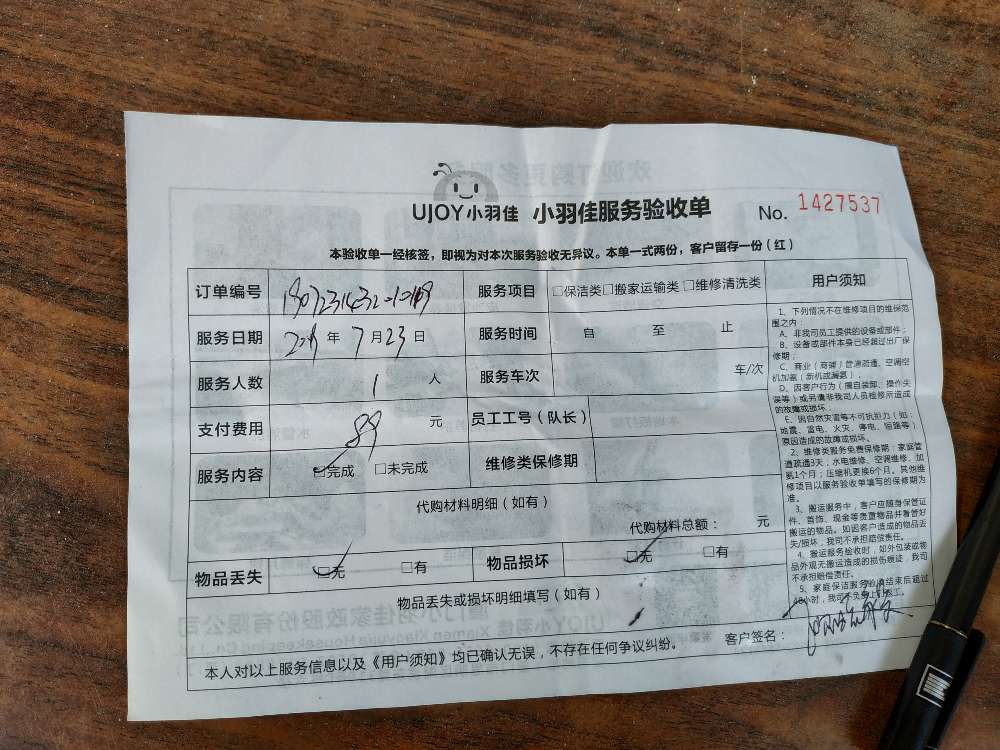 UJOY小羽佳 小羽佳服务验收单 No. 1427537
本验收单一经核签，即视为对本次服务验收无异议。本单一式两份，客户留存一份（红）
订单编号 服务项目 □保洁类□搬家运输类□维修清洗类 用户须知
服务日期 年 7 月 23 日 服务时间 自 至 止
服务人数 1 人 服务车次 车/次
支付费用 89 元 员工工号（队长）
服务内容 □完成 □未完成 维修类保修期
代购材料明细（如有）
代购材料总额： 元
物品丢失 □无 □有 物品损坏 □无 □有
物品丢失或损坏明细填写（如有）
客户签名：
本人对以上服务信息以及《用户须知》均已确认无误，不存在任何争议纠纷。
1、下列情况不在维修项目的维保范
围之内：
A、非我司员工提供的设备或部件；
B、设备或部件本身已经超过出厂保
修期；
C、商业（商铺）管道疏通、空调空
机加氨（新机或漏氨）；
D、因客户行为（擅自装卸、操作失
误等）或另请非我司人员检修所造成
的故障或损坏；
E、因自然灾害等不可抗拒力（如：
地震、雷电、火灾、停电、短路等）
原因造成的故障或损坏。
2、维修类服务免费保修期：家庭管
道疏通3天，水电维修、空调维修、加
氨1个月；压缩机更换6个月。其他维
修项目以服务验收单填写的保修期为
准。
3、搬运服务中，客户应随身保管证
件、首饰、现金等贵重物品并看管好
搬运的物品。如因客户造成的物品丢
失/损坏，我司不承担赔偿责任。
4、搬运服务验收时，如外包装或物
品外观无搬运造成的损伤痕迹，我司
不承担赔偿责任。
5、家庭保洁服务验收结束后超过